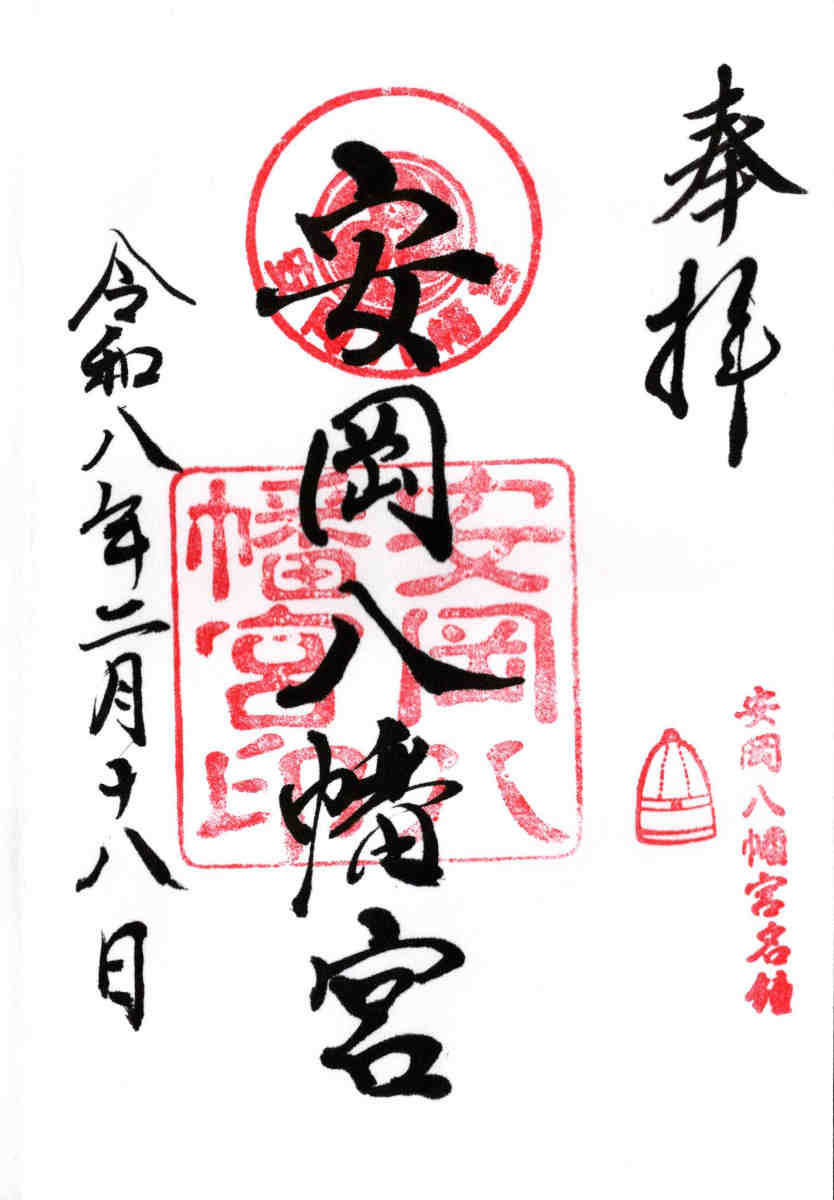 奉拝
安岡八幡宮名鐘
安岡八幡宮
安岡八
幡宮印
令和八年二月十八日